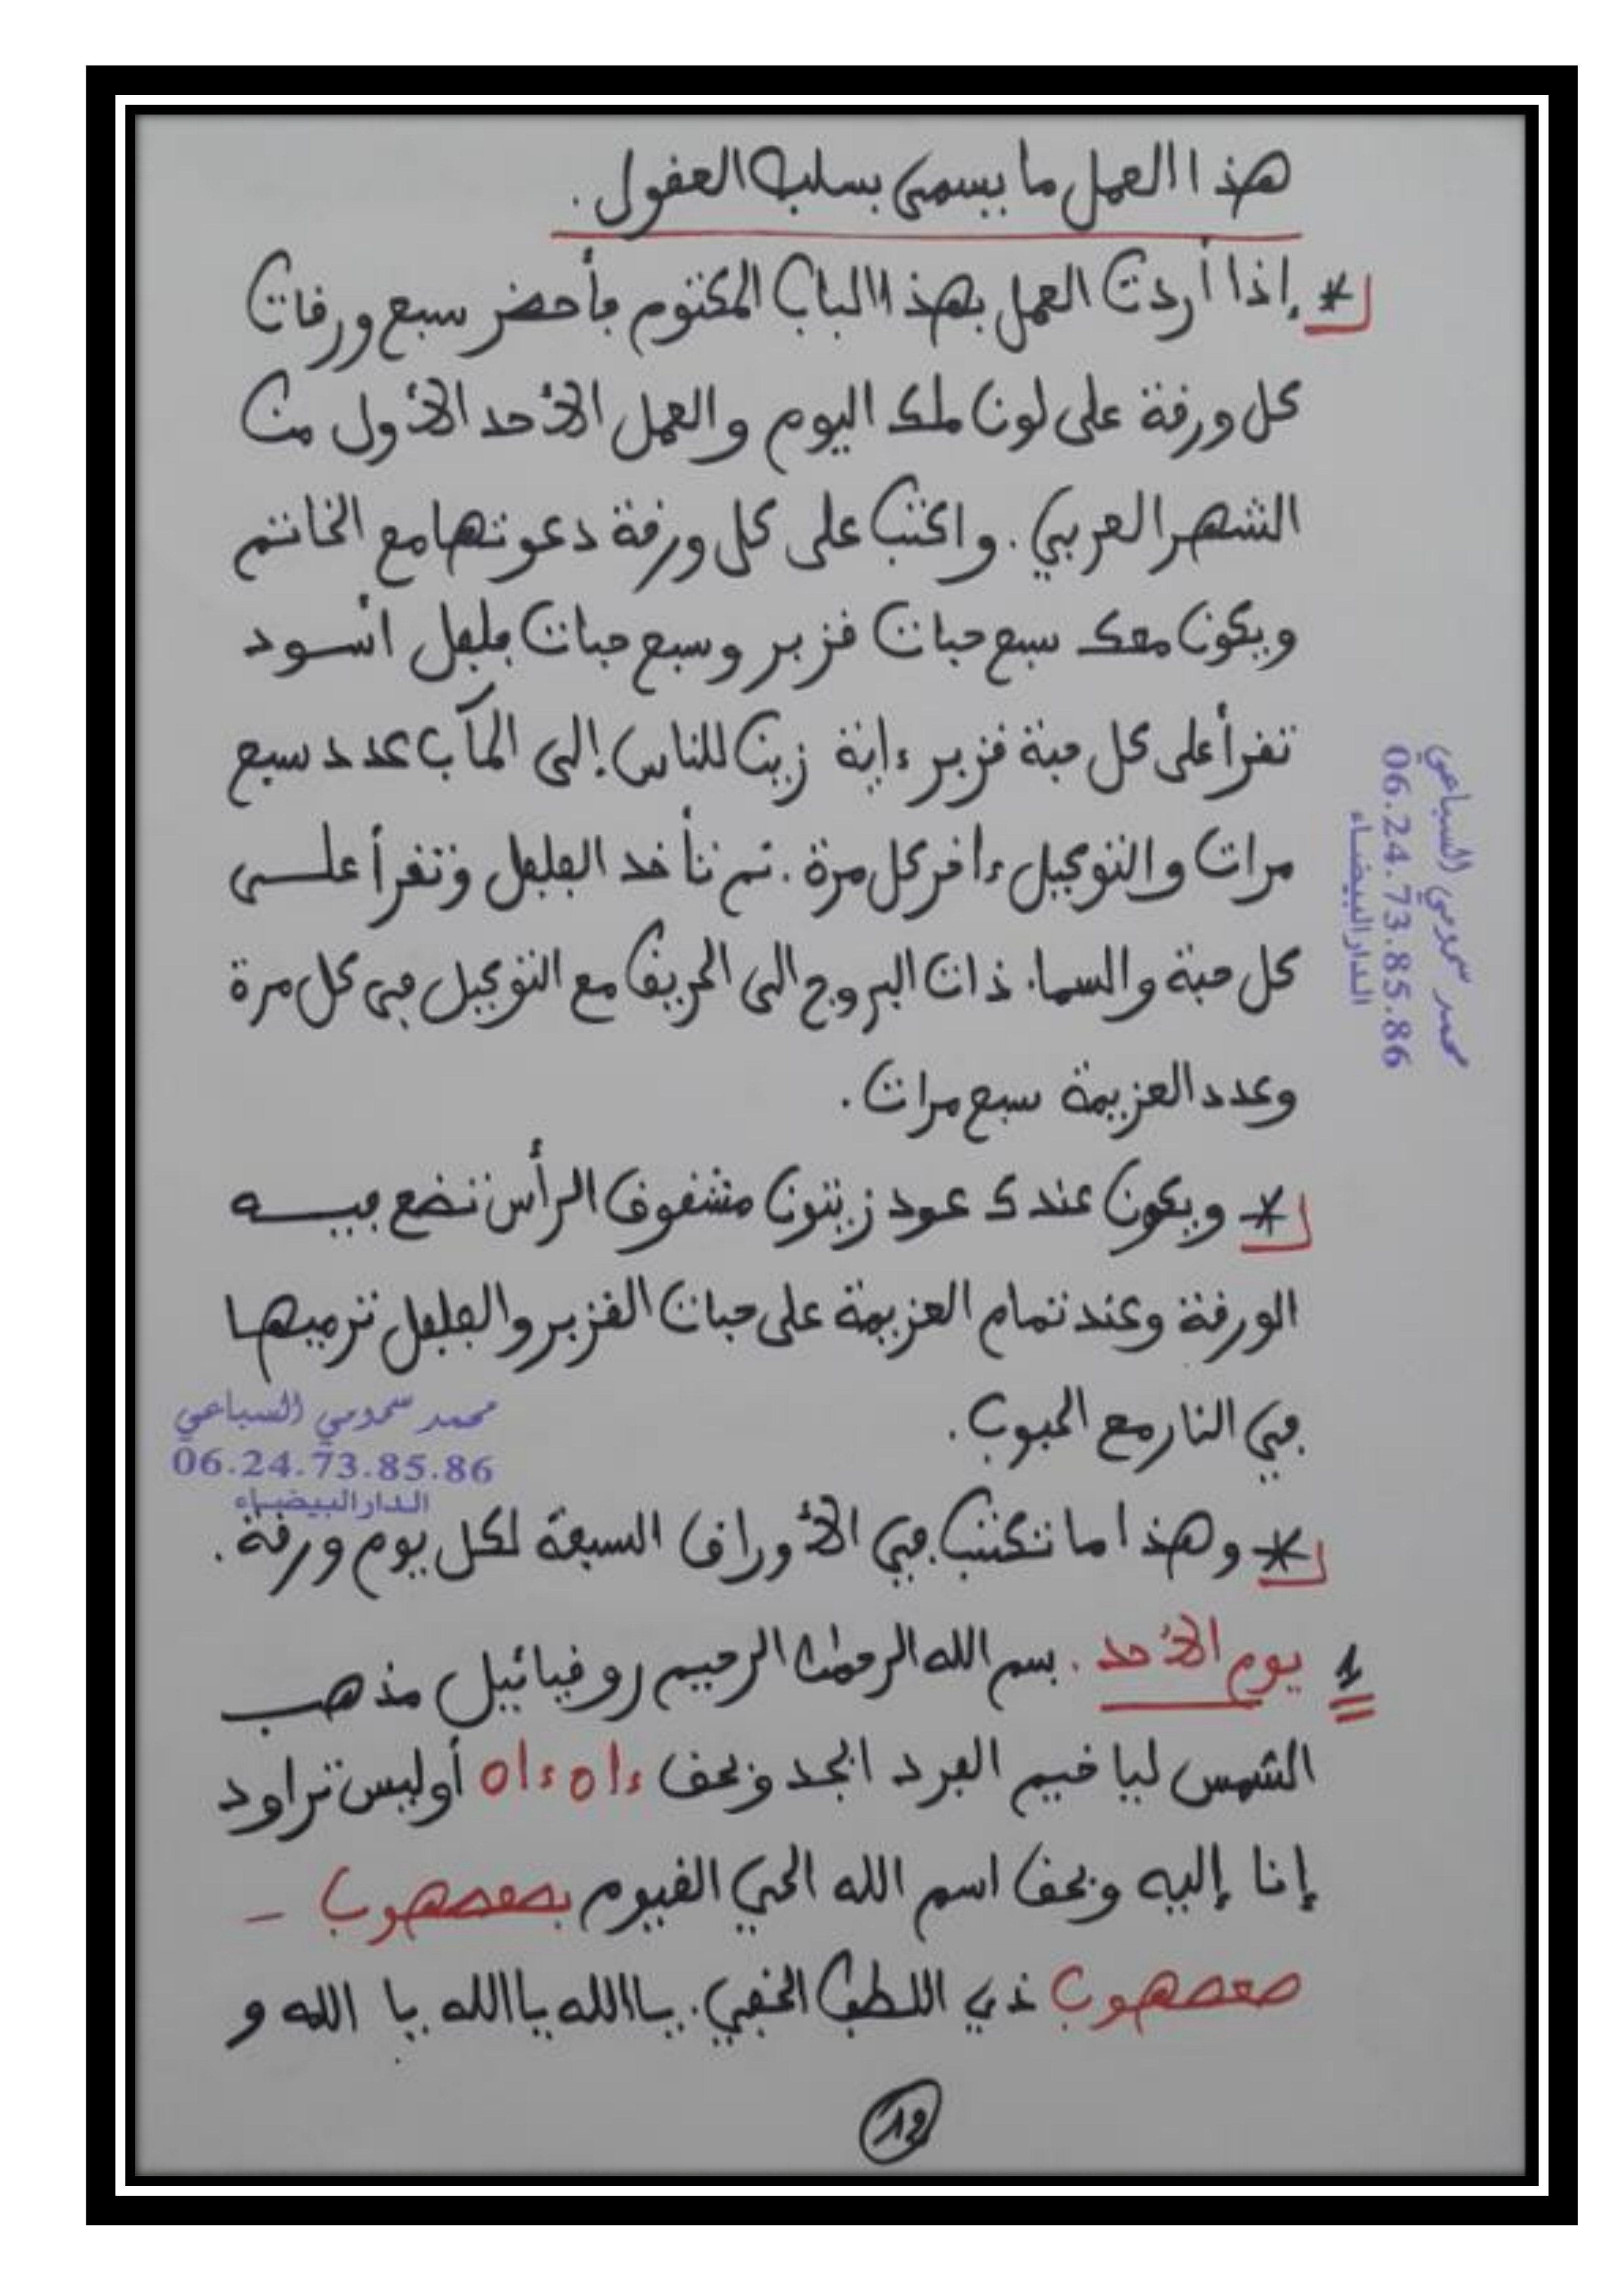 هذا العمل ما يسمى بسلب العقول.
* إذا أردت العمل بهذا الباب المكتوم فأحضر سبع ورقات
كل ورقة على لون ملك اليوم والعمل الأحد الأول من
الشهر العربي. واكتب على كل ورقة دعوتها مع الخاتم
ويكون معك سبع حبات قزبر وسبع حبات فلفل أسود
تقرأ على كل حبة قزبر ءاية زين للناس إلى المآب عدد سبع
مرات والتوكيل ءاخر كل مرة. تم تأخد الفلفل وتقرأ على
كل حبة والسماء ذات البروج الى الحريق مع التوكيل في كل مرة
وعدد العزيمة سبع مرات.
* ويكون عندك عود زيتون مشقوق الرأس تضع فيه
الورقة وعند تمام العزيمة على حبات القزبر والفلفل ترميها
في النار مع الحبوب.
* وهذا ما تكتب في الأوراق السبعة لكل يوم ورقة.
1 يوم الأحد. بسم الله الرحمن الرحيم روقيائيل مذهب
الشمس ليا خيم الفرد ابجد وبحق ءاه ءاه أوليس تراود
إنا إليه وبحق اسم الله الحي القيوم بصعصهوب -
صعصهوب ذي اللطف الخفي. يا الله يا الله يا الله و
12
محمد سمومي السباعي
06.24.73.85.86
الدار البيضاء
محمد سمومي السباعي
06.24.73.85.86
الدار البيضاء